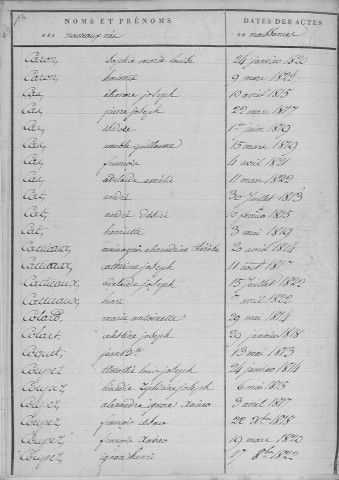 NOMS ET PRÉNOMS
DATES DES ACTES
DES nouveaux nés
DE naissances
Caron, Sophie marie louise 24 janvier 1820
Caron, 9 mars 1824
Cas, joseph 10 avril 1815
Cas, pierre joseph 22 mars 1817
Cas, 1er juin 1819
Cas, guillaume 15 mars 1819
Cas, françois 4 avril 1821
Cas, adelaïde amélie 11 mars 1822
Cat, andré 30 juillet 1813
Cat, andré désiré 1815
Cat, henriette 3 mai 1819
Catteaux, alexandrine thérèse 20 avril 1814
Catteaux, catherine joseph 11 août 1817
Catteaux, adelaïde joseph 15 juillet 1822
Catteaux, 7 avril 1822
Colard, marie antoinette 20 mai 1814
Colart, célestine joseph 29 janvier 1818
Coquet, jean bte 13 mai 1813
Coupez, louis joseph 24 janvier 1814
Coupez, joseph 6 mai 1815
Coupez, alexandre ignace xavier 3 avril 1817
Coupez, françois 22 xbre 1818
Coupez, françois xavier 19 mars 1820
Coupez, ignace henri 17 8bre 1822